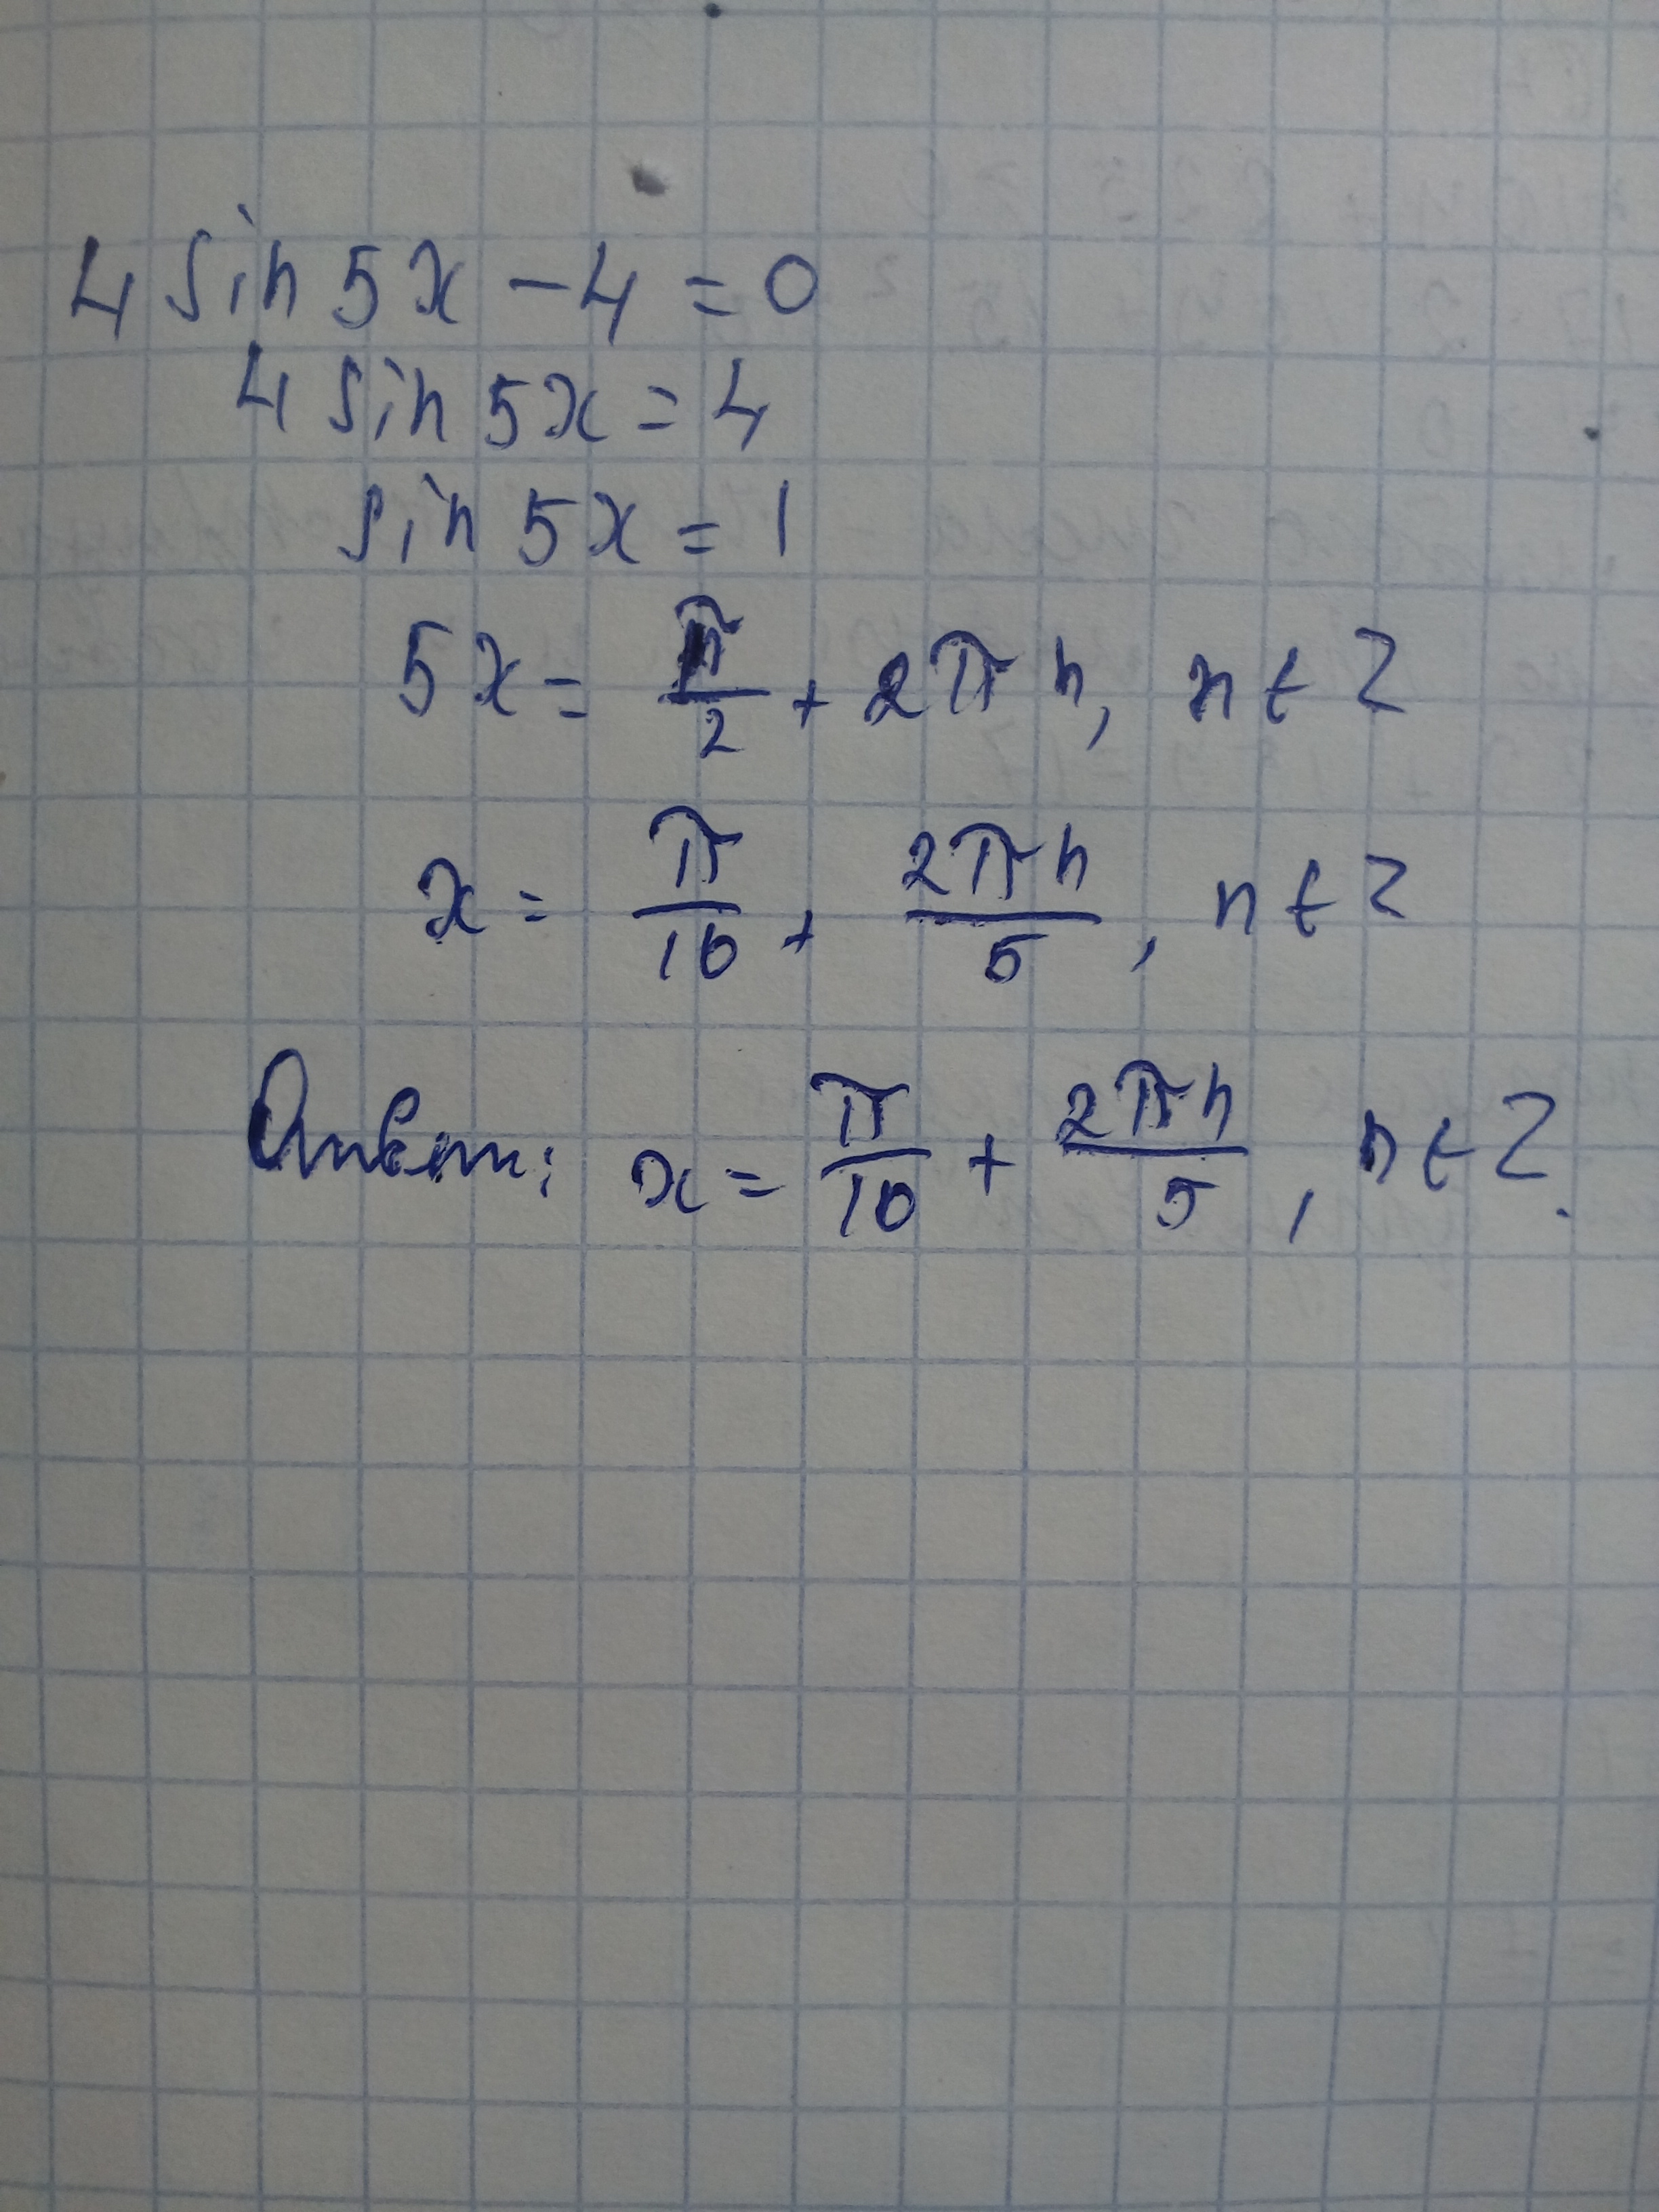 4 sin 5x - 4 = 0
4 sin 5x = 4
sin 5x = 1
5x = π/2 + 2πn, n ∈ Z
x = π/10 + 2πn/5, n ∈ Z
Ответ: x = π/10 + 2πn/5, n ∈ Z.